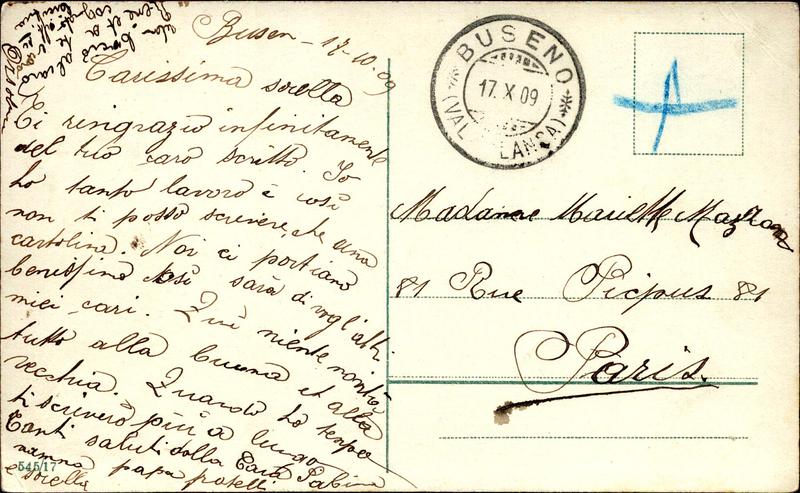 Busen - 17-10.09
Carissima sorella
Ti ringrazio infinitamente
del tuo caro scritto. Io
ho tanto lavoro è così
non ti posso scrivere, che una
cartolina. Noi ci portiamo
benissimo così sarà di vogl'altri
miei cari. Qui niente novità
tutto alla buona et alla
vecchia. Quando ho tempo
ti scriverò più a lungo
Tanti saluti dalla Cara Sabina
mamma papa fratelli
e sorella
545/17
BUSENO
17. X 09
(VAL CALANCA)
Madame Mariette
81 Rue Picpus 81
Paris.